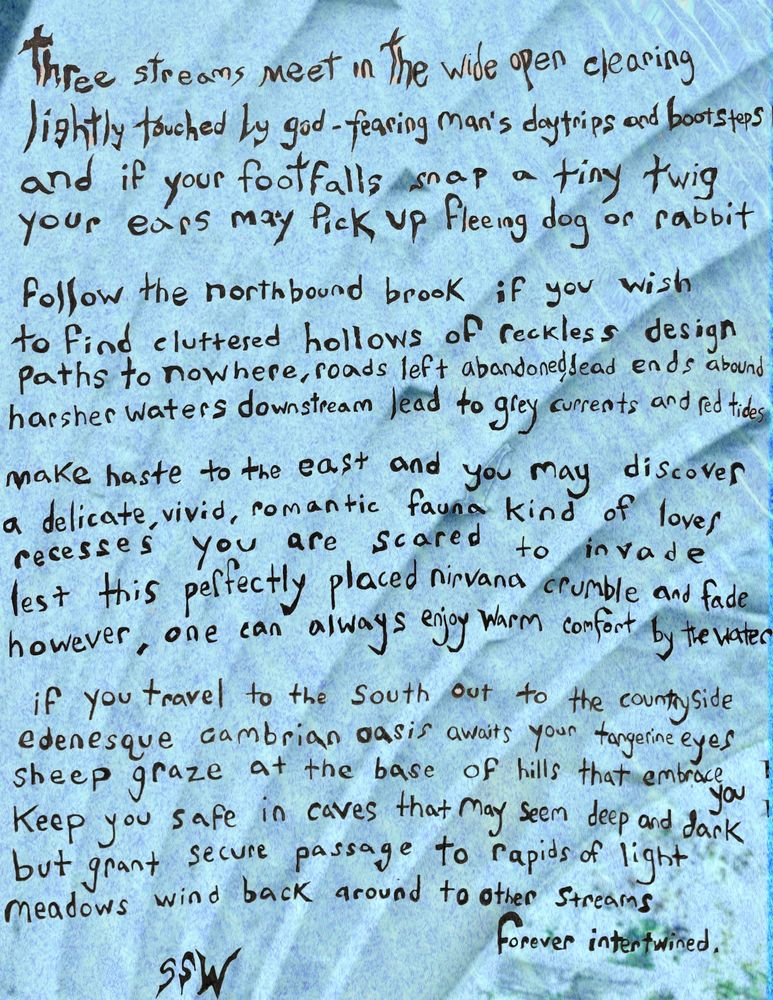 Three streams meet in the wide open clearing
lightly touched by god-fearing man's daytrips and bootsteps
and if your footfalls snap a tiny twig
your ears may pick up fleeing dog or rabbit
follow the northbound brook if you wish
to find cluttered hollows of reckless design
paths to nowhere, roads left abandoned, dead ends abound
harsher waters downstream lead to grey currents and red tides
make haste to the east and you may discover
a delicate, vivid, romantic fauna kind of lover
recesses you are scared to invade
lest this perfectly placed nirvana crumble and fade
however, one can always enjoy warm comfort by the water
if you travel to the south out to the countryside
edenesque cambrian oasis awaits your tangerine eyes
sheep graze at the base of hills that embrace you
keep you safe in caves that may seem deep and dark
but grant secure passage to rapids of light
meadows wind back around to other streams
forever intertwined.
SSW